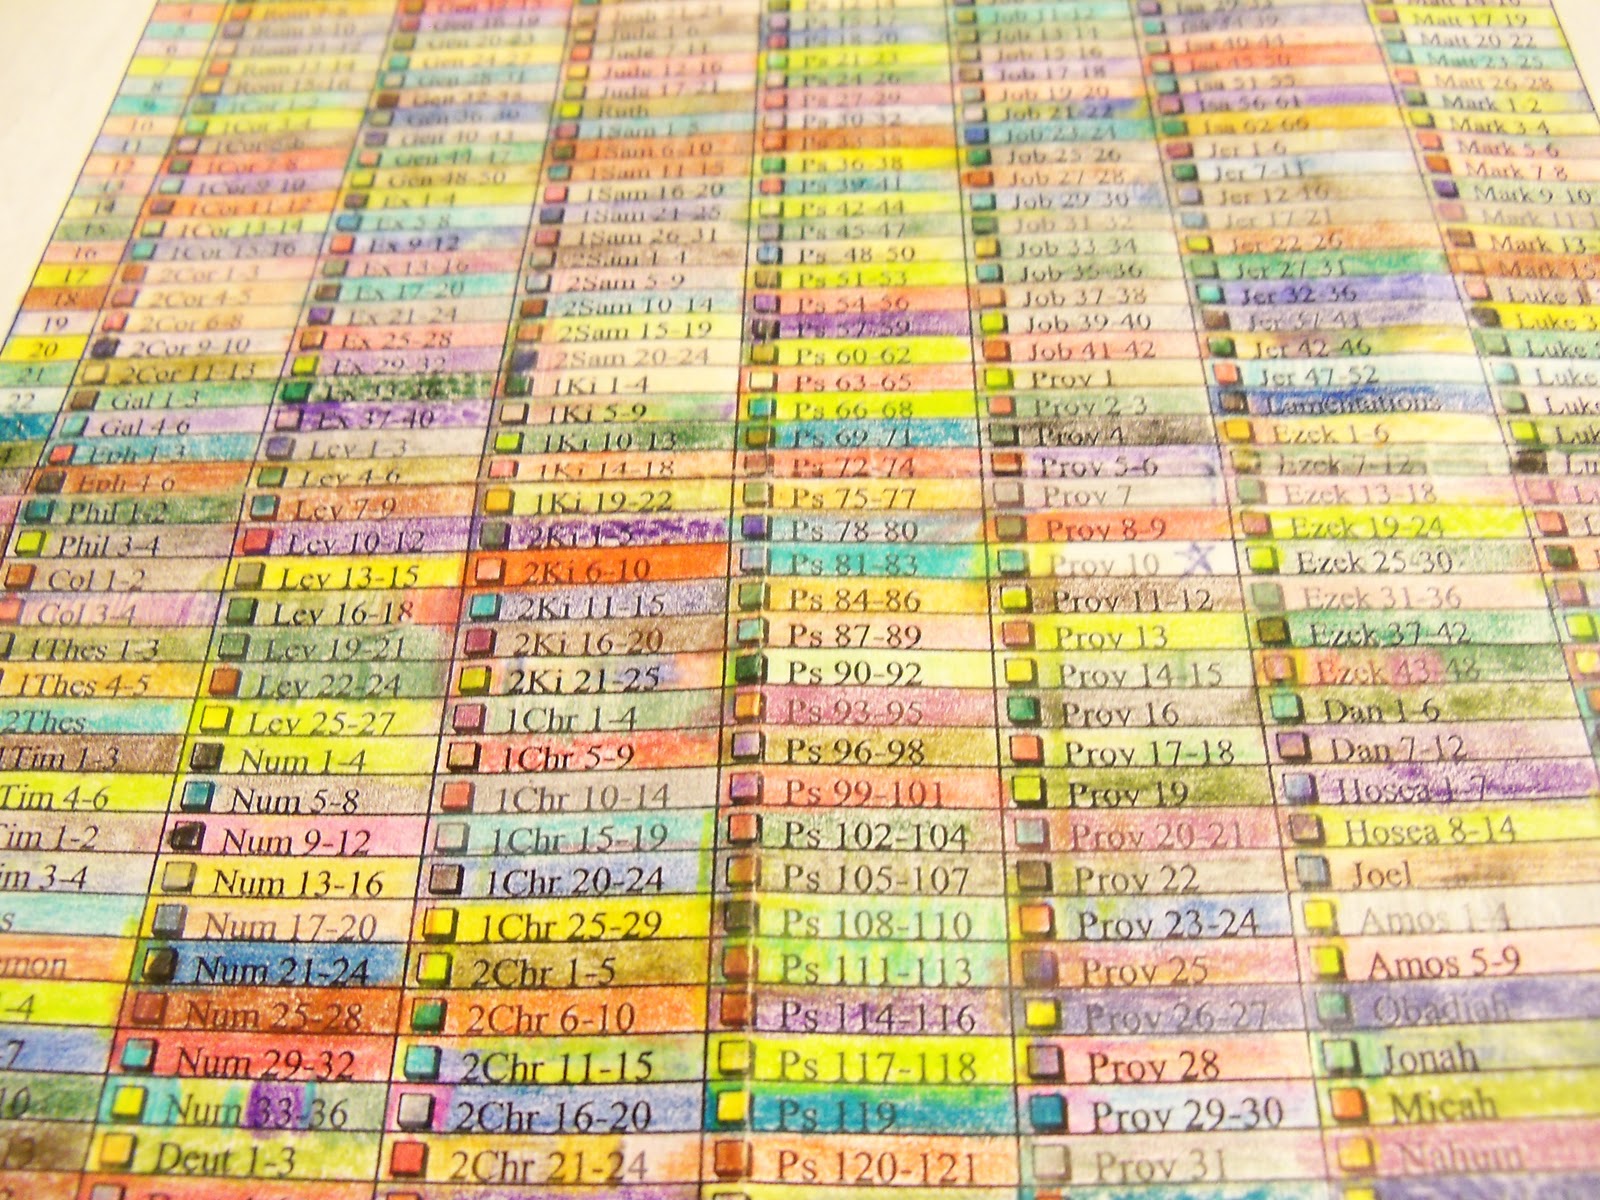 5
6
7
8
9
10
11
12
13
14
15
16
17
18
19
20
21
22
Rom 9-10
Rom 11-12
Rom 13-14
Rom 15-16
1Cor 1-2
1Cor 3-4
1Cor 5-6
1Cor 7-8
1Cor 9-10
1Cor 11-12
1Cor 13-14
1Cor 15-16
2Cor 1-3
2Cor 4-5
2Cor 6-8
2Cor 9-10
2Cor 11-13
Gal 1-3
Gal 4-6
Eph 1-3
Eph 4-6
Phil 1-2
Phil 3-4
Col 1-2
Col 3-4
1Thes 1-3
1Thes 4-5
2Thes
1Tim 1-3
Tim 4-6
im 1-2
im 3-4
s
mon
-4
-7
10
13
Gen 20-23
Gen 24-27
Gen 28-31
Gen 32-35
Gen 36-39
Gen 40-43
Gen 44-47
Gen 48-50
Ex 1-4
Ex 5-8
Ex 9-12
Ex 13-16
Ex 17-20
Ex 21-24
Ex 25-28
Ex 29-32
Ex 33-36
Ex 37-40
Lev 1-3
Lev 4-6
Lev 7-9
Lev 10-12
Lev 13-15
Lev 16-18
Lev 19-21
Lev 22-24
Lev 25-27
Num 1-4
Num 5-8
Num 9-12
Num 13-16
Num 17-20
Num 21-24
Num 25-28
Num 29-32
Num 33-36
Deut 1-3
Jude 1-6
Jude 7-11
Jude 12-16
Jude 17-21
Ruth
1Sam 1-5
1Sam 6-10
1Sam 11-15
1Sam 16-20
1Sam 21-25
1Sam 26-31
2Sam 1-4
2Sam 5-9
2Sam 10-14
2Sam 15-19
2Sam 20-24
1Ki 1-4
1Ki 5-9
1Ki 10-13
1Ki 14-18
1Ki 19-22
2Ki 1-5
2Ki 6-10
2Ki 11-15
2Ki 16-20
2Ki 21-25
1Chr 1-4
1Chr 5-9
1Chr 10-14
1Chr 15-19
1Chr 20-24
1Chr 25-29
2Chr 1-5
2Chr 6-10
2Chr 11-15
2Chr 16-20
2Chr 21-24
Ps 18-20
Ps 21-23
Ps 24-26
Ps 27-29
Ps 30-32
Ps 33-35
Ps 36-38
Ps 39-41
Ps 42-44
Ps 45-47
Ps 48-50
Ps 51-53
Ps 54-56
Ps 57-59
Ps 60-62
Ps 63-65
Ps 66-68
Ps 69-71
Ps 72-74
Ps 75-77
Ps 78-80
Ps 81-83
Ps 84-86
Ps 87-89
Ps 90-92
Ps 93-95
Ps 96-98
Ps 99-101
Ps 102-104
Ps 105-107
Ps 108-110
Ps 111-113
Ps 114-116
Ps 117-118
Ps 119
Ps 120-121
Job 11-12
Job 13-14
Job 15-16
Job 17-18
Job 19-20
Job 21-22
Job 23-24
Job 25-26
Job 27-28
Job 29-30
Job 31-32
Job 33-34
Job 35-36
Job 37-38
Job 39-40
Job 41-42
Prov 1
Prov 2-3
Prov 4
Prov 5-6
Prov 7
Prov 8-9
Prov 10
Prov 11-12
Prov 13
Prov 14-15
Prov 16
Prov 17-18
Prov 19
Prov 20-21
Prov 22
Prov 23-24
Prov 25
Prov 26-27
Prov 28
Prov 29-30
Prov 31
Isa 40-44
Isa 45-50
Isa 51-55
Isa 56-61
Isa 62-66
Jer 1-6
Jer 7-11
Jer 12-16
Jer 17-21
Jer 22-26
Jer 27-31
Jer 32-36
Jer 37-41
Jer 42-46
Jer 47-52
Lamentations
Ezek 1-6
Ezek 7-12
Ezek 13-18
Ezek 19-24
Ezek 25-30
Ezek 31-36
Ezek 37-42
Ezek 43-48
Dan 1-6
Dan 7-12
Hosea 1-7
Hosea 8-14
Joel
Amos 1-4
Amos 5-9
Obadiah
Jonah
Micah
Nahum
Matt 17-19
Matt 20-22
Matt 23-25
Matt 26-28
Mark 1-2
Mark 3-4
Mark 5-6
Mark 7-8
Mark 9-10
Mark 11-1
Mark 13-
Mark 15
Luke 1
Luke 3
Luke
Luke
Luk
Luk
Lu